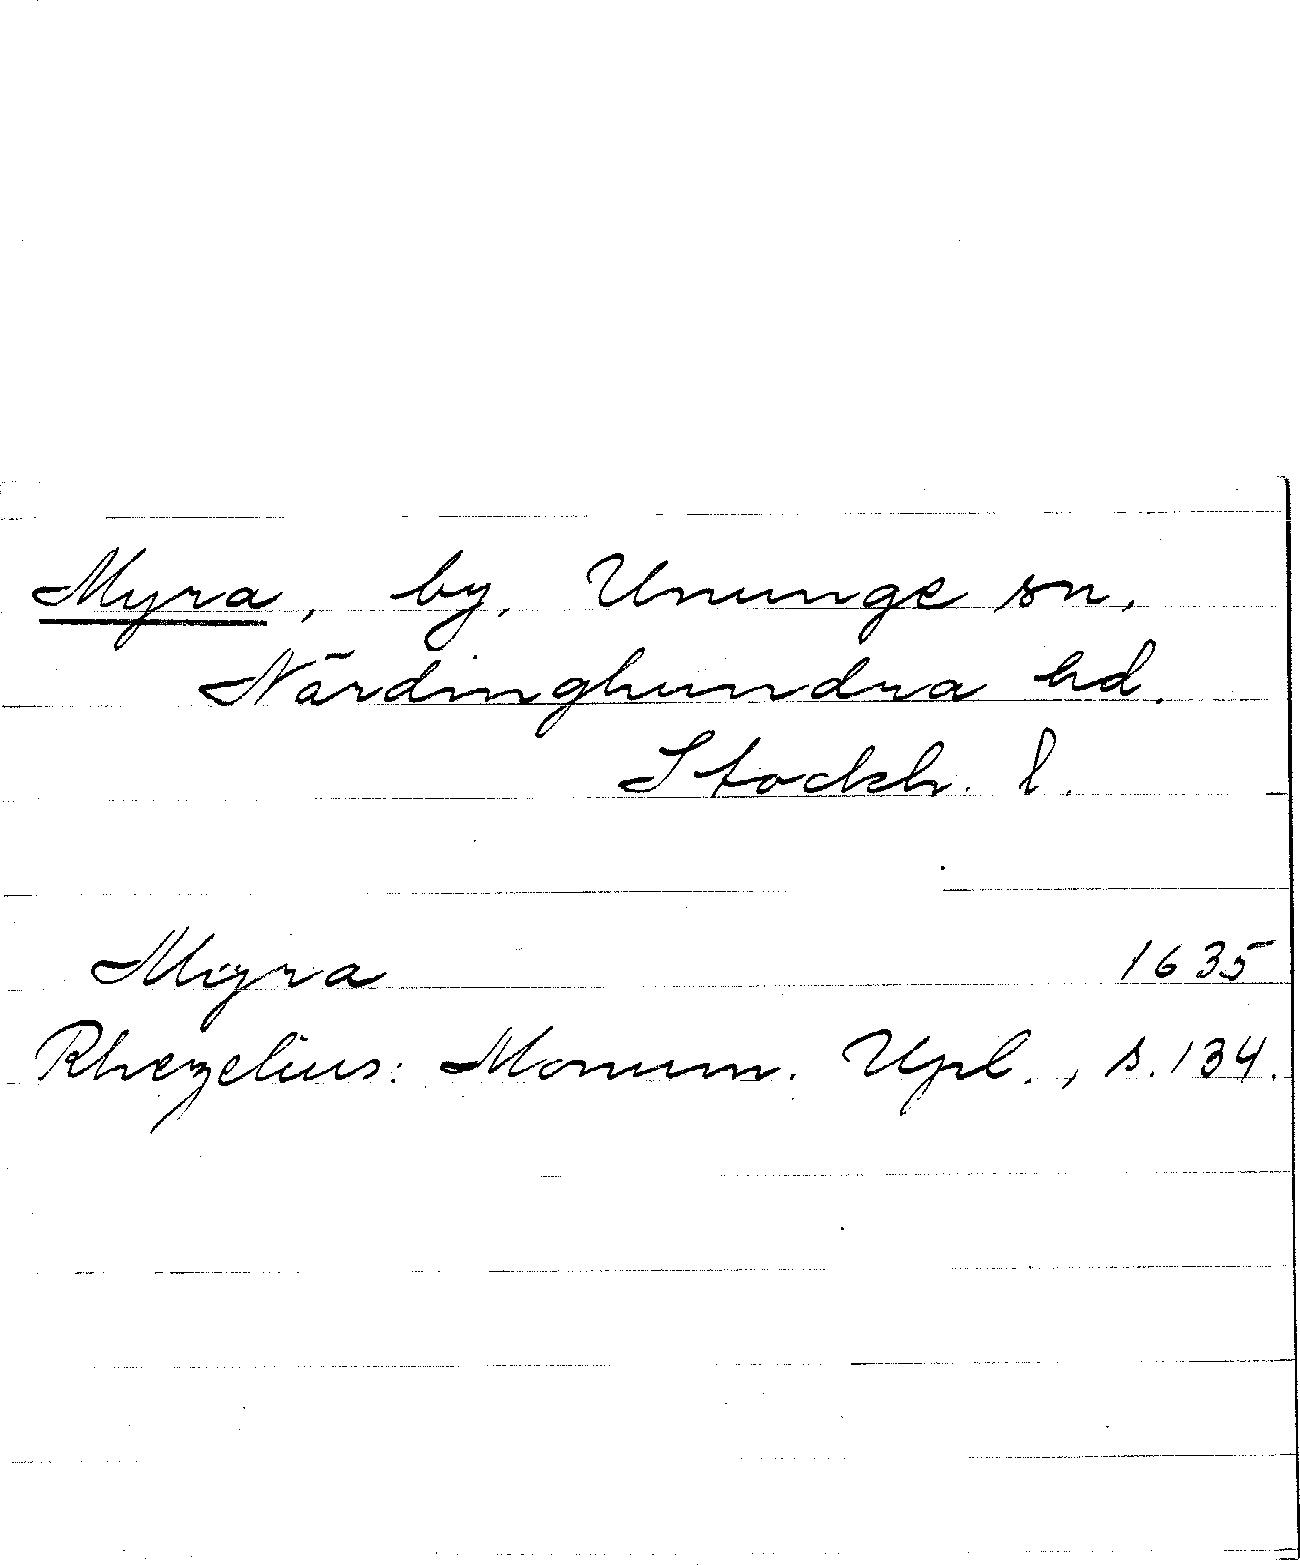 Myra, by, Ununge sn,
Närdinghundra hd.
Stockh. l.
Myra 1635
Rhezelius: Monum. Upl., s. 134.